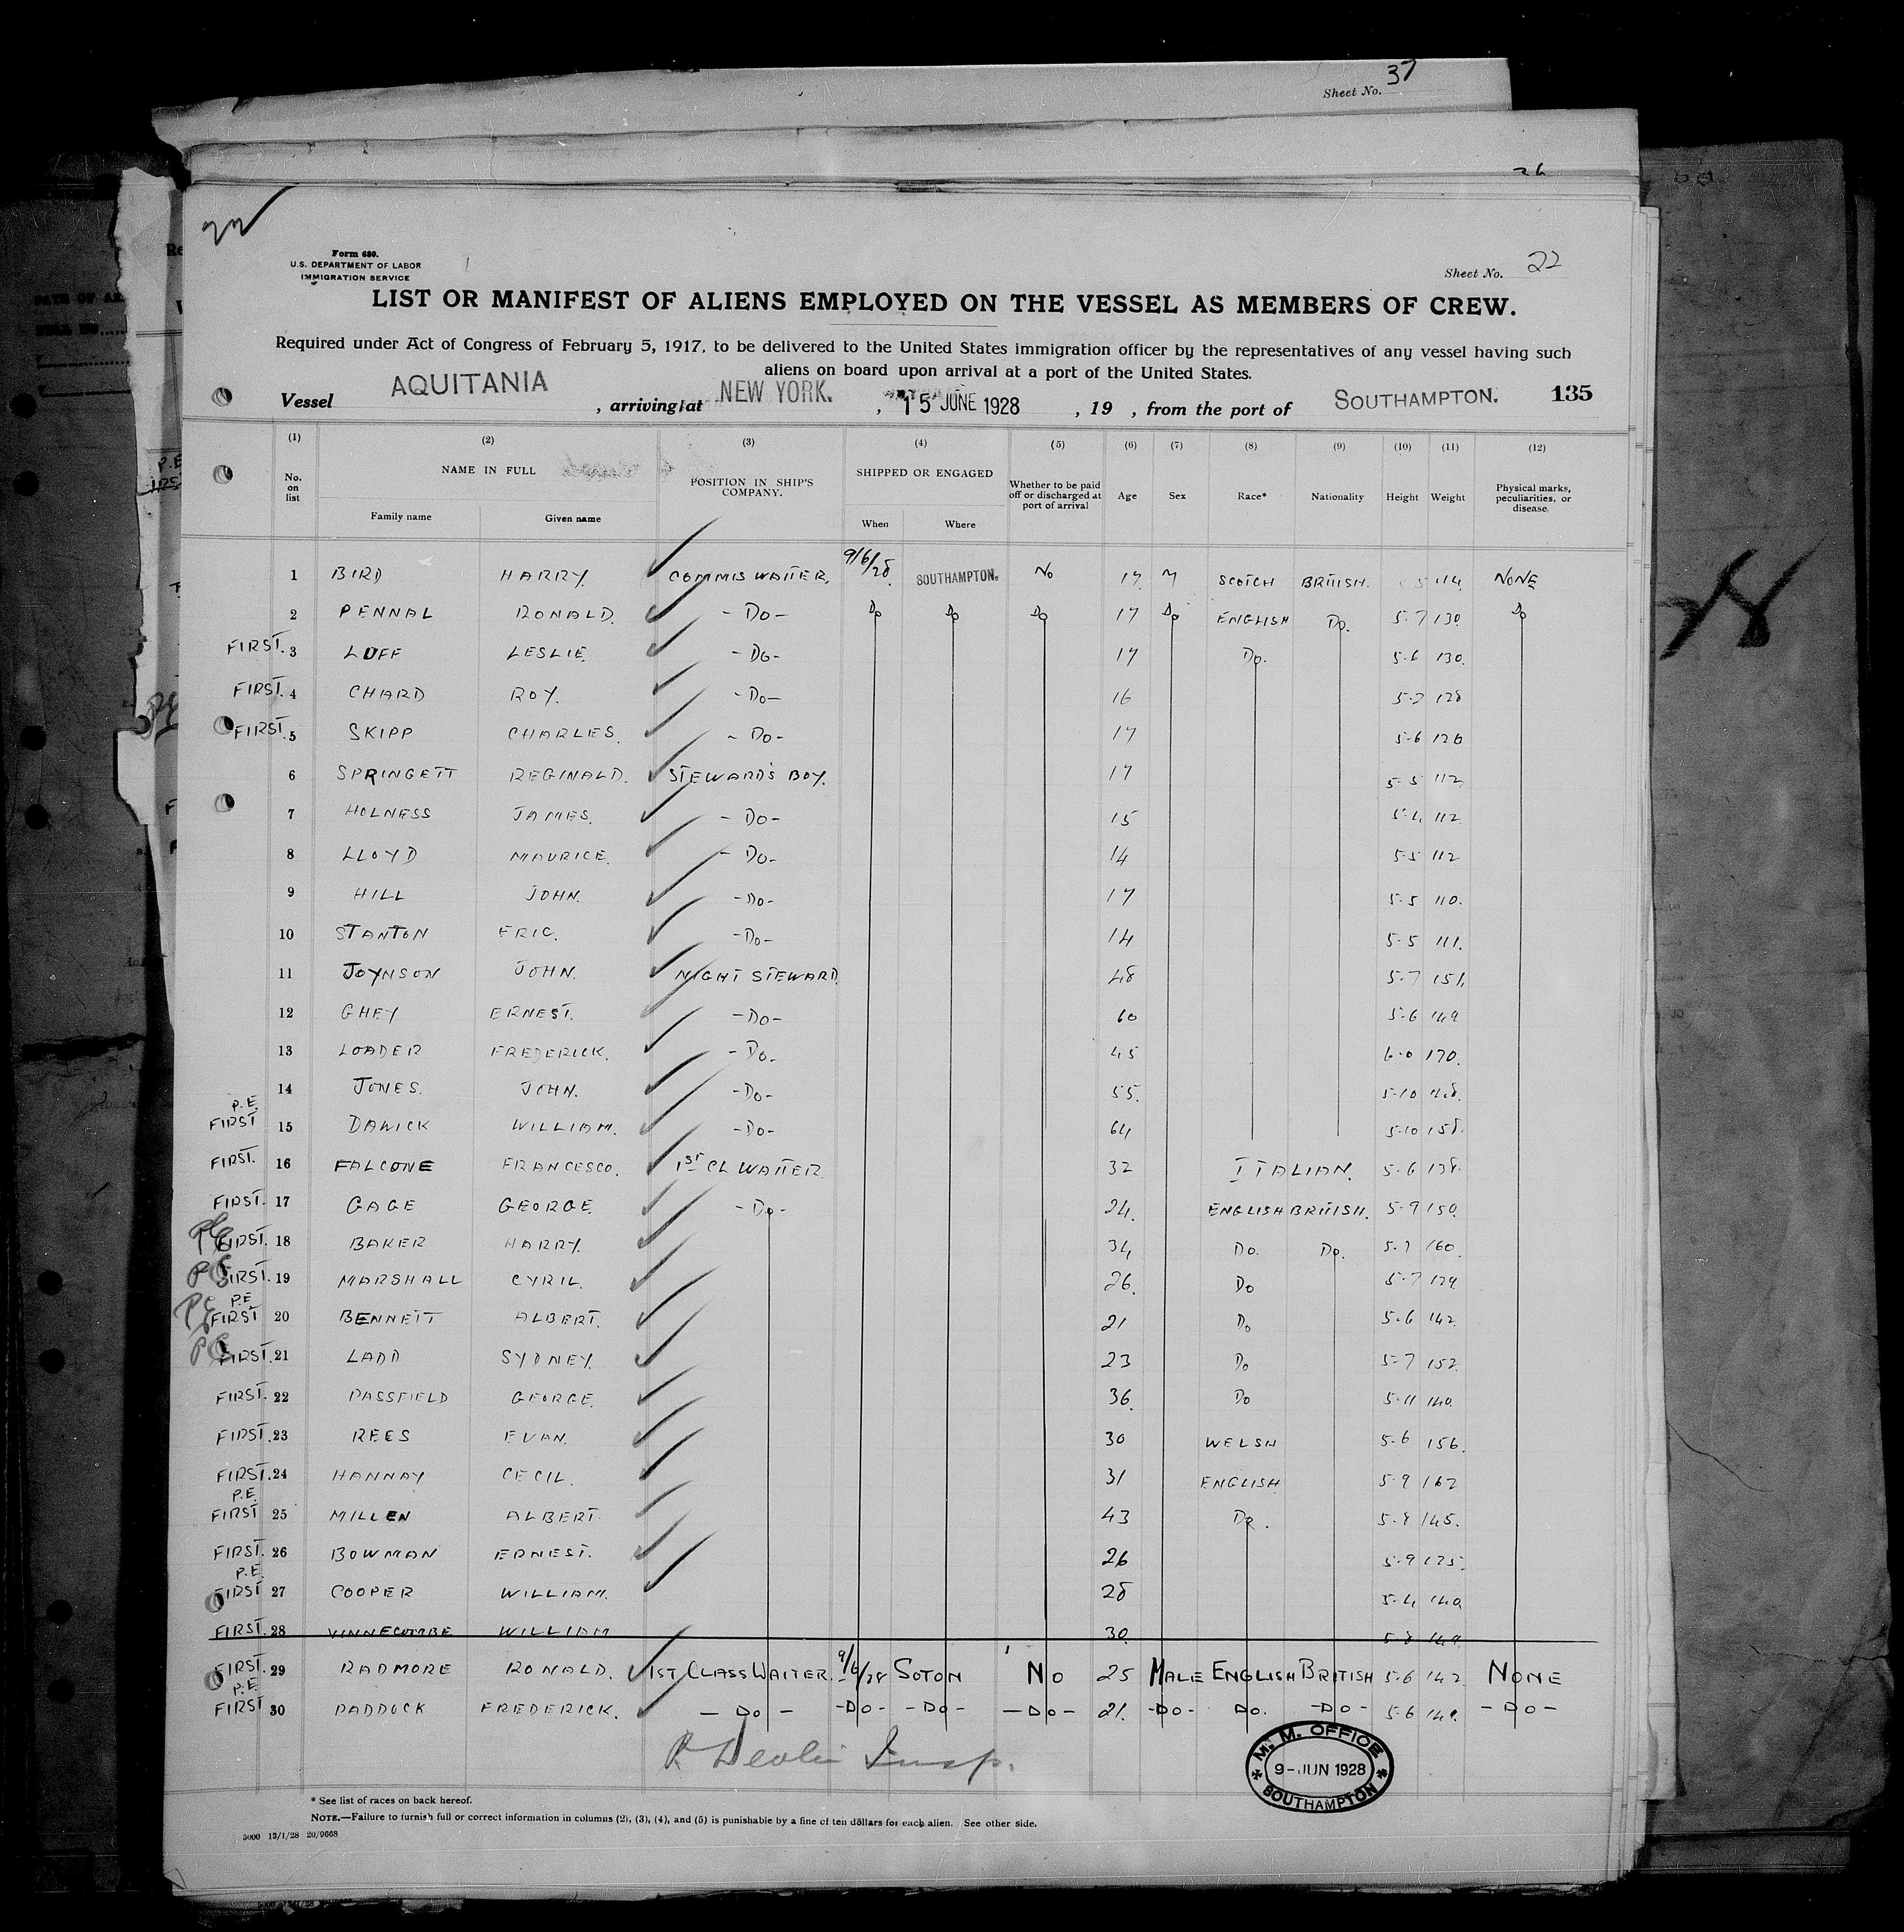 Sheet No. 37
22
Form 689.
U.S. DEPARTMENT OF LABOR
IMMIGRATION SERVICE
Sheet No. 22
LIST OR MANIFEST OF ALIENS EMPLOYED ON THE VESSEL AS MEMBERS OF CREW.
Required under Act of Congress of February 5, 1917, to be delivered to the United States immigration officer by the representatives of any vessel having such
aliens on board upon arrival at a port of the United States.
Vessel AQUITANIA, arriving at NEW YORK., 15 JUNE 1928, 19 , from the port of SOUTHAMPTON. 135
(1) (2) (3) (4) (5) (6) (7) (8) (9) (10) (11) (12)
No. on list NAME IN FULL Family name Given name POSITION IN SHIP'S COMPANY. SHIPPED OR ENGAGED When Where Whether to be paid off or discharged at port of arrival Age Sex Race* Nationality Height Weight Physical marks, peculiarities, or disease.
1 BIRD HARRY. COMMIS WAITER, 9/6/28. SOUTHAMPTON. No 17 M SCOTCH BRITISH. 5 114. NONE
2 PENNAL RONALD. -Do- Do Do Do 17 Do ENGLISH Do. 5-7 130. Do
FIRST. 3 LUFF LESLIE. -Do- 17 Do. 5-6 130.
FIRST. 4 CHARD ROY. -Do- 16 128
FIRST. 5 SKIPP CHARLES. -Do- 17 5-6 126
6 SPRINGETT REGINALD. STEWARD'S BOY. 17 5-5 112.
7 HOLNESS JAMES. -Do- 15 5-4 112
8 LLOYD MAURICE. -Do- 14 5-5 112
9 HILL JOHN. -Do- 17 5-5 110.
10 STANTON ERIC. -Do- 14 5-5 111.
11 JOYNSON JOHN. NIGHT STEWARD. 48 5-7 151.
12 GHEY ERNEST. -Do- 60 5-6 149
13 LOADER FREDERICK. -Do. 45 6-0 170.
14 JONES. JOHN. -Do- 55. 5-10
P.E.
FIRST 15 DAWICK WILLIAM. -Do- 64 5-10 158.
FIRST. 16 FALCONE FRANCESCO. 1ST CL WAITER. 32 ITALIAN. 5-6 138.
FIRST. 17 GAGE GEORGE. -Do- 24. ENGLISH BRITISH. 5-9 150.
PE FIRST. 18 BAKER HARRY. 34 Do. Do. 5-7 160.
PE FIRST. 19 MARSHALL CYRIL. 26. Do 5-7 179.
PE P.E.
FIRST 20 BENNETT ALBERT. 21 Do 5-6 142
PE FIRST. 21 LADD SYDNEY. 23 Do 5-7 152.
FIRST. 22 PASSFIELD GEORGE. 36. Do 5-11 140.
FIRST. 23 REES EVAN. 30 WELSH 5-6 156.
FIRST. 24 HANNAY CECIL. 31 ENGLISH 5-9 162
P.E.
FIRST 25 MILLEN ALBERT. 43 Do. 5-8 145.
FIRST. 26 BOWMAN ERNEST. 26 5-9 175.
P.E.
FIRST 27 COOPER WILLIAM. 28 5-4 140
FIRST. 28 VINNECOMBE WILLIAM 30. 5-8 149.
FIRST. 29 RADMORE RONALD. 1ST CLASS WAITER. 9/6/28 SOTON No 25 MALE ENGLISH BRITISH 5-6 142 NONE
P.E.
FIRST 30 PADDOCK FREDERICK. -Do- -Do- -Do- -Do- 21. -Do- Do. -Do- 5-6 149. -Do-
P. Devlin Insp.
M. M. OFFICE
9-JUN 1928
SOUTHAMPTON
* See list of races on back hereof.
NOTE.—Failure to furnish full or correct information in columns (2), (3), (4), and (5) is punishable by a fine of ten dollars for each alien. See other side.
5000 13/1/28 20/9668